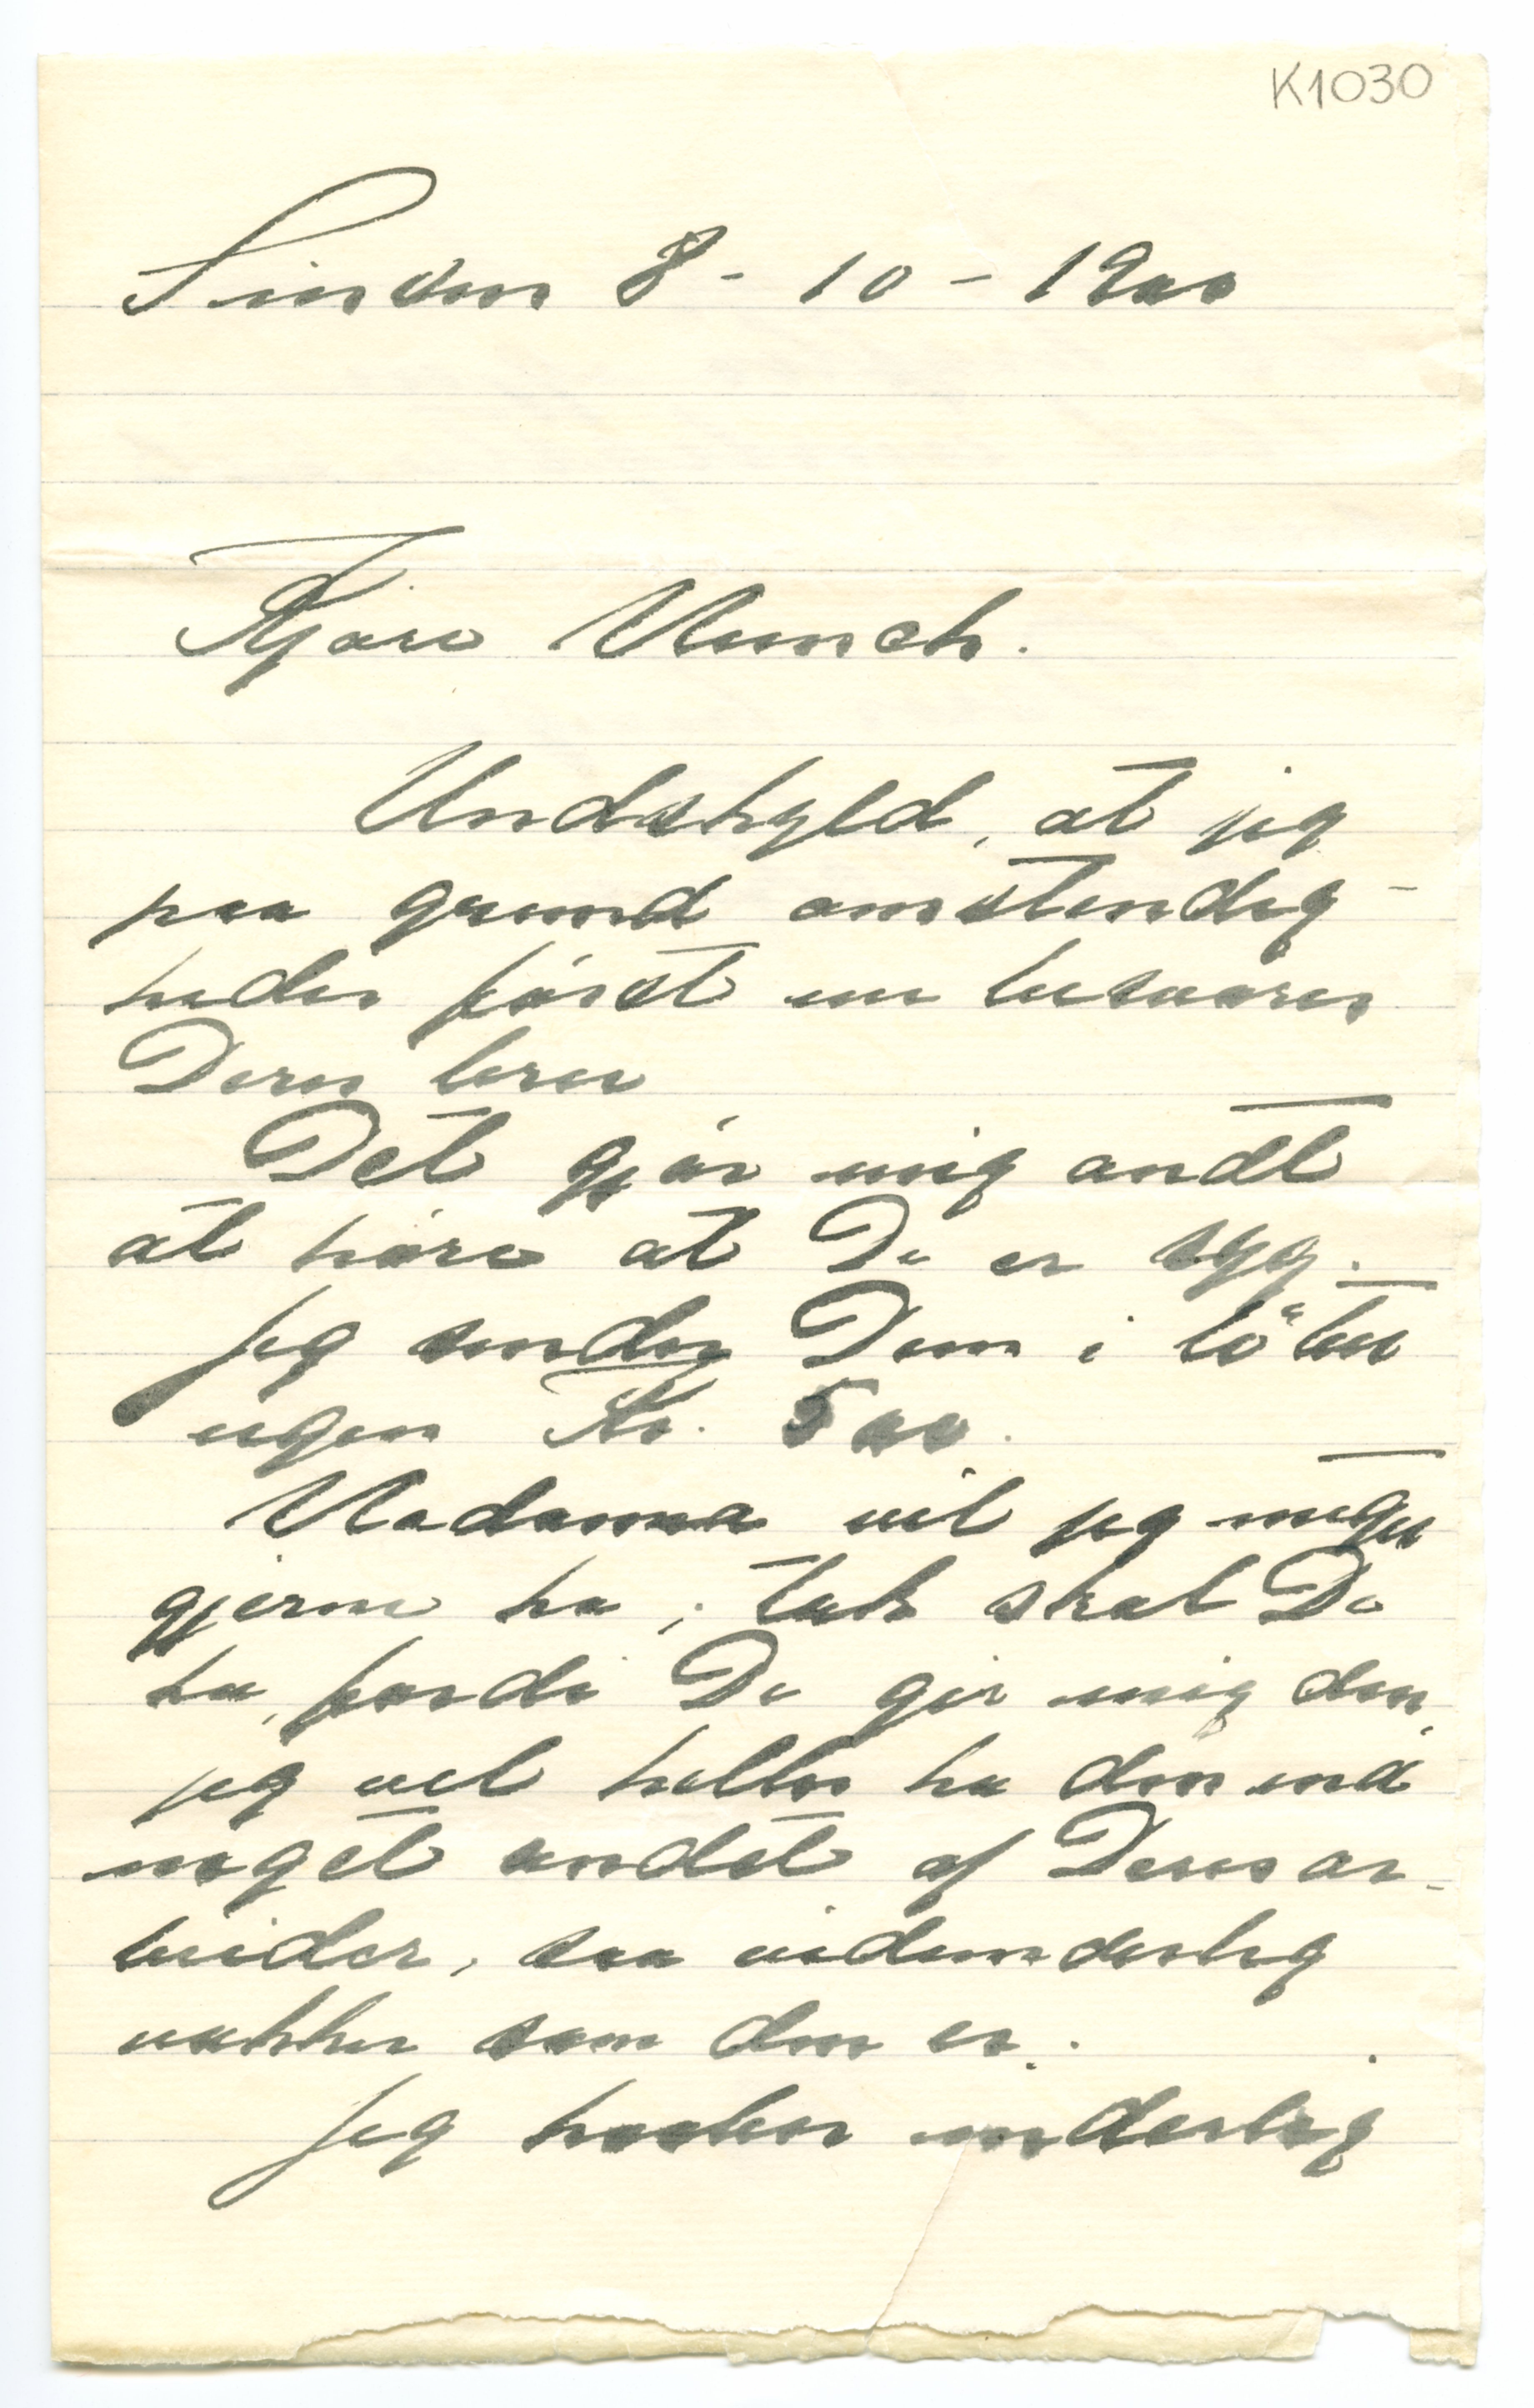 K1030
Sinsen 8 - 10 - 1900
Kjære Munch.
Undskyld, at jeg
paa grund omstendig-
heder først nu besvarer
Deres brev
Det gjør mig ondt
at høre at De er syg.
Jeg sender Dem i løbet
ugen Kr. 500.
Madonna vil jeg meget
gjerne ha; tak skal De
ha, fordi De gir mig den,
jeg vil heller ha den end
noget andet af Deres ar-
beider, saa vidunderlig
vakker som den er.
Jeg haaber inderlig